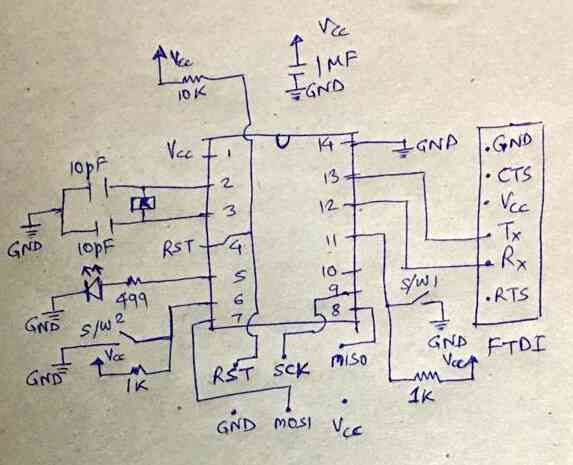 Vcc
Vcc
1MF
10K
GND
Vcc
1
14
GND
GND
10pF
2
13
CTS
3
12
Vcc
GND
10pF
RST
4
11
Tx
Rx
5
10
S/W1
499
9
RTS
GND
6
8
S/W2
7
GND
FTDI
Vcc
Vcc
GND
1K
RST
SCK
MISO
1K
GND
MOSI
Vcc